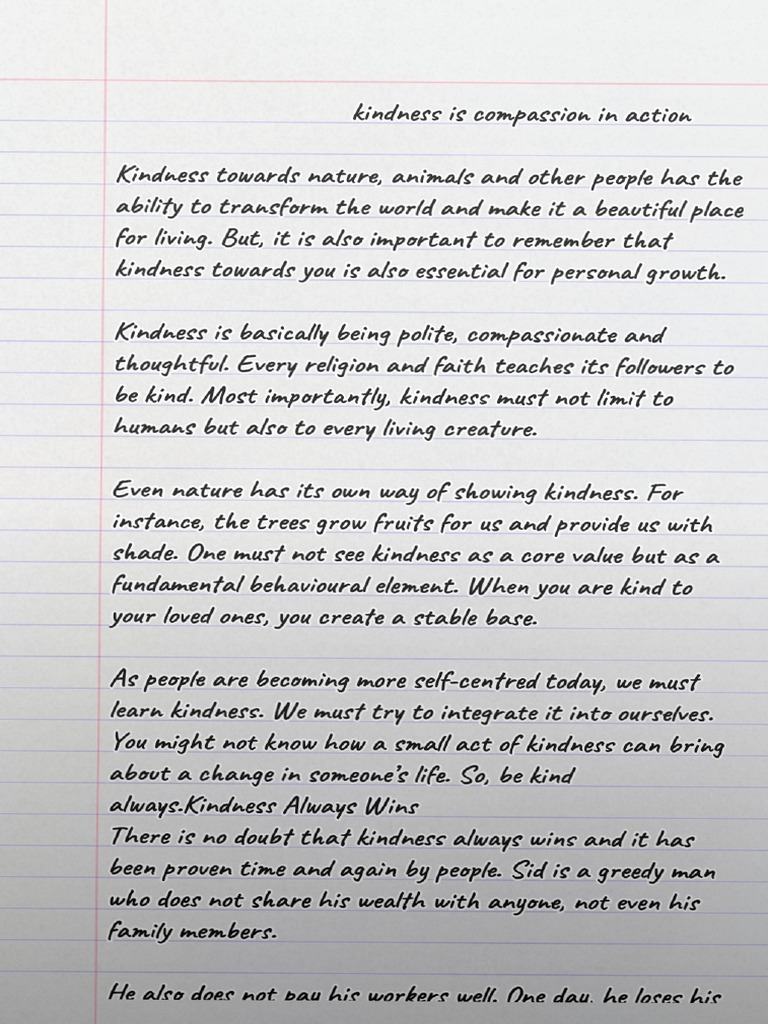 kindness is compassion in action
Kindness towards nature, animals and other people has the
ability to transform the world and make it a beautiful place
for living. But, it is also important to remember that
kindness towards you is also essential for personal growth.
Kindness is basically being polite, compassionate and
thoughtful. Every religion and faith teaches its followers to
be kind. Most importantly, kindness must not limit to
humans but also to every living creature.
Even nature has its own way of showing kindness. For
instance, the trees grow fruits for us and provide us with
shade. One must not see kindness as a core value but as a
fundamental behavioural element. When you are kind to
your loved ones, you create a stable base.
As people are becoming more self-centred today, we must
learn kindness. We must try to integrate it into ourselves.
You might not know how a small act of kindness can bring
about a change in someone's life. So, be kind
always.Kindness Always Wins
There is no doubt that kindness always wins and it has
been proven time and again by people. Sid is a greedy man
who does not share his wealth with anyone, not even his
family members.
He also does not pay his workers well. One day, he loses his